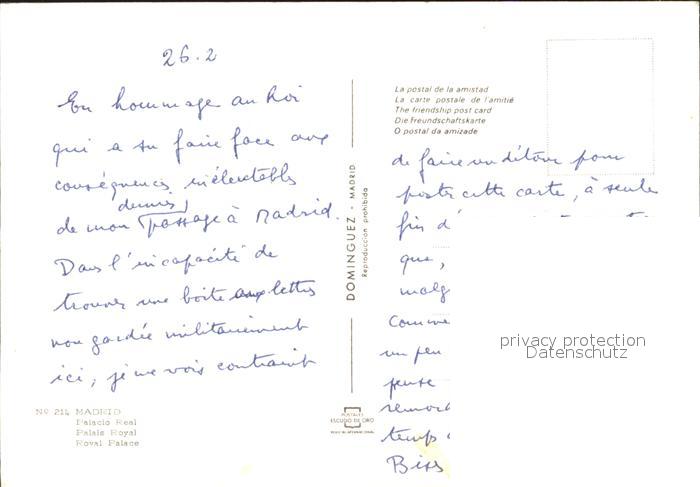 26.2
En hommage au Roi
qui a su faire face aux
conséquences inéluctables
dernier
de mon passage à Madrid.
Dans l'incapacité de
trouver une boîte aux lettres
non gardée militairement
ici, je me vois contraint
Nº 214 MADRID
Palacio Real
Palais Royal
Royal Palace
DOMINGUEZ - MADRID
Reproduccion prohibida
POSTALES
ESCUDO DE ORO
La postal de la amistad
La carte postale de l'amitié
The friendship post card
Die Freundschaftskarte
O postal da amizade
de faire un détour pour
poster cette carte, à seule
fin d'
que,
malg
comme
un peu
pense
remon
temps
Bises
privacy protection
Datenschutz